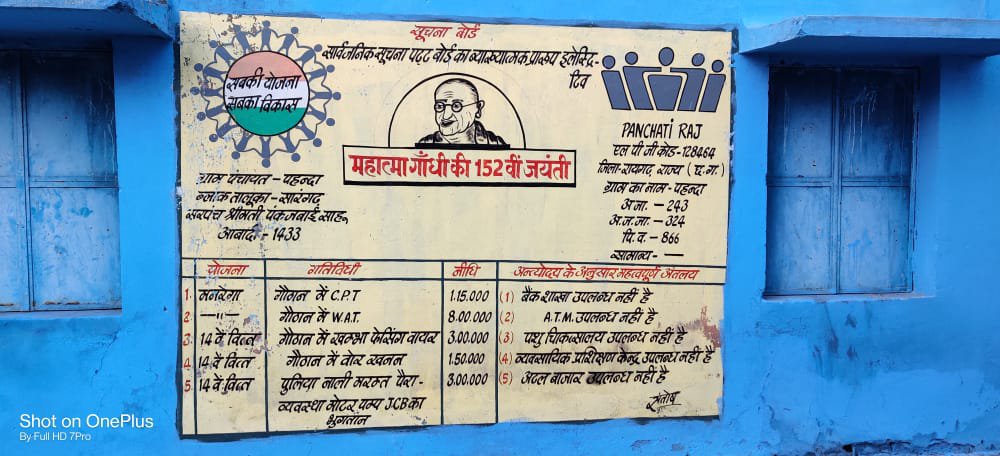 सूचना बोर्ड
सार्वजनिक सूचना पटट बोर्ड का व्याख्यात्मक प्रारूप इलेस्ट्रि-
टिव
सबकी योजना
सबका विकास
महात्मा गाँधी की 152 वीं जयंती
PANCHATI RAJ
एल पी जी कोड-128464
जिला-रायगढ़ राज्य (छ.ग.)
ग्राम का नाम - पहन्दा
अ.जा. - 243
अ.ज.जा. - 324
पि.व. - 866
सामान्य - —
ग्राम पंचायत - पहन्दा
ब्लाक तालुका - सारंगढ़
सरपंच श्रीमती पंकजबाई साहू,
आबादी - 1433
योजना गतिविधी नीधि अन्त्योदय के अनुसार महत्वपूर्ण अंतलय
1. मनरेगा गौठान में C.P.T 1.15.000 (1) बैंक शाखा उपलब्ध नहीं है
2. —॥— गौठान में W.A.T. 8.00.000 (2) A.T.M. उपलब्ध नहीं है
3. 14 वे वित्त गौठान में खम्भा फेसिंग वायर 3.00.000 (3) पशु चिकित्सालय उपलब्ध नहीं है
4. 14 वें वित्त गौठान में बोर खनन 1.50.000 (4) व्यवसायिक प्रशिक्षण केन्द्र उपलब्ध नहीं है
5. 14 वें वित्त पुलिया नाली मरम्त पैरा- 3.00.000 (5) अटल बाजार उपलब्ध नहीं है
व्यवस्था मोटर पम्प JCB का
भुगतान
संतोष
Shot on OnePlus
By Full HD 7Pro